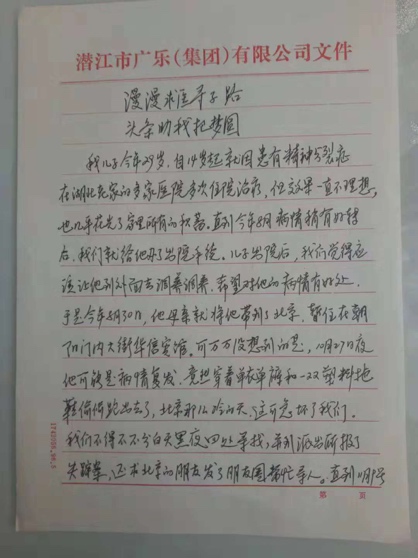 潜江市广乐(集团)有限公司文件
漫漫求医寻子路
头条助我把梦圆
我儿子今年29岁,自14岁起就因患有精神分裂症
在湖北老家的多家医院多次住院治疗,但效果一直不理想,
也几乎花光了家里所有的积蓄。直到今年8月病情稍有好转
后,我们就给他办了出院手续。儿子出院后,我们觉得应
该让他到外面去调养调养,希望对他的病情有好处,
于是今年8月30日,他母亲就将他带到了北京,暂住在朝
阳门内大街华侨宾馆。可万万没想到的是,10月27日夜
他可能是病情复发,竟然穿着单衣单裤和一双塑料拖
鞋偷偷跑出去了,北京那么冷的天,这可急坏了我们。
我们不得不不分白天黑夜四处寻找,并到派出所报了
失踪案,还求北京的朋友发了朋友圈帮忙寻人。直到11月1号
第 页